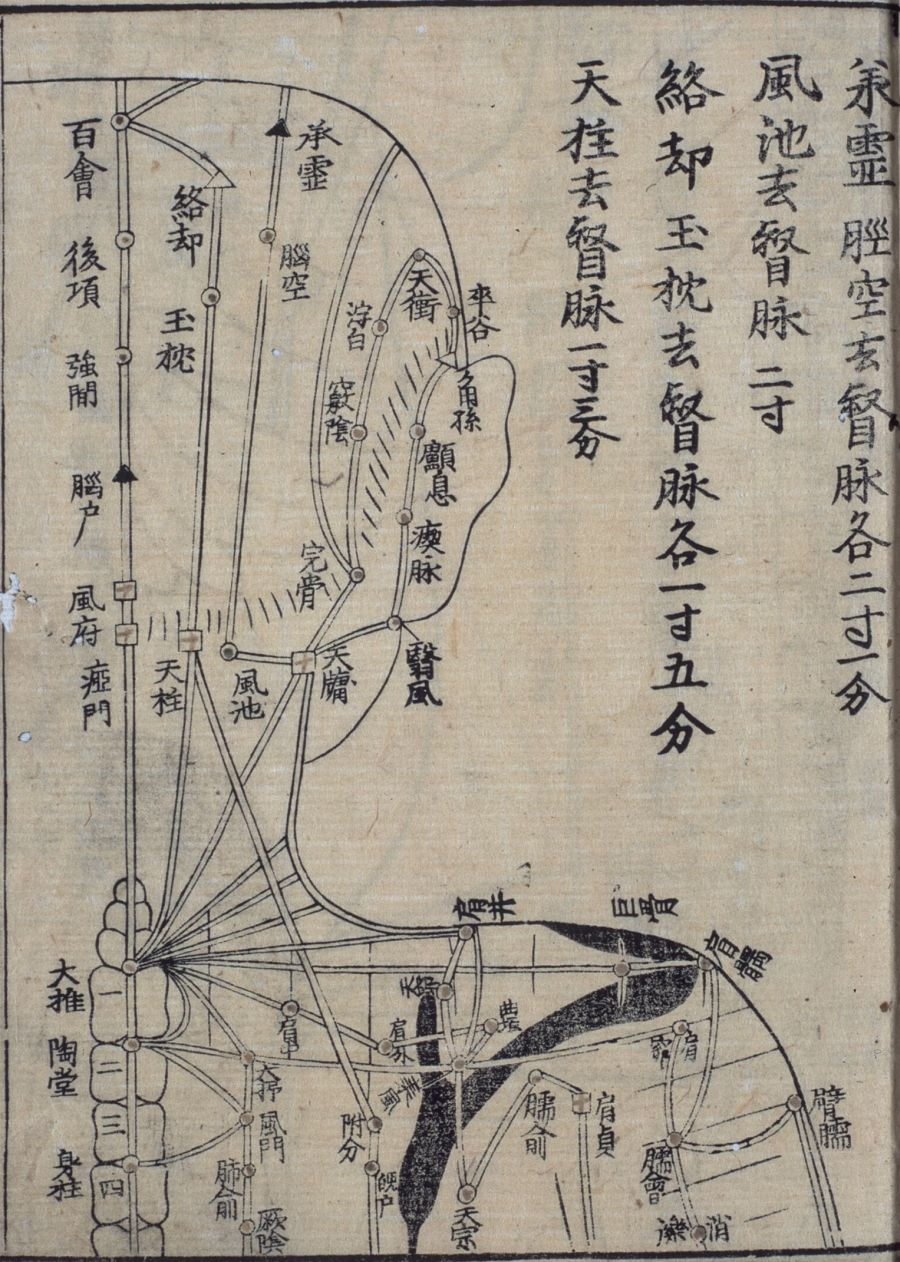 承靈 腦空去督脉各二寸一分
風池去督脉 二寸
絡却 玉枕去督脉各一寸五分
天柱去督脉一寸三分
百會
後項
強間
腦户
風府
瘂門
絡却
玉枕
天柱
承靈
腦空
風池
浮白
竅陰
完骨
天衝
率谷
角孫
顱息
瘈脉
翳風
天牖
肩井
巨骨
肩髃
大推
陶堂
身柱
一
二
三
四
大抒
風門
肺俞
厥陰
肩中
肩外
附分
魄户
曲垣
秉風
天宗
臑俞
肩貞
臑會
臂臑
消濼